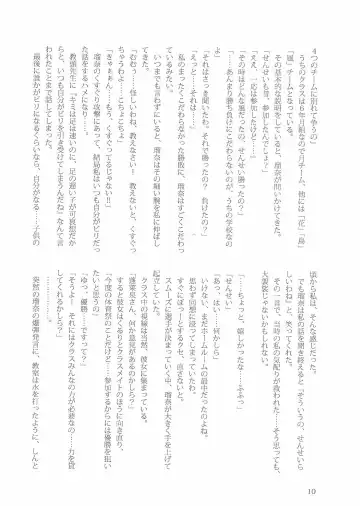 4つのチームに別れて争うの」
「風」チームとなっている。
その基本的な説明をしていると、瑠奈が問いかけてきた。
「せんせいも昔、参加したんでしょ？」
「ええ、一応は参加したけど……」
「その時はどんな風だったの、せんせい勝ったの？」
「……あんまり勝ち負けにこだわらないのが、うちの学校なの」
「それはさっき聞いたわ、それで勝ったの？　負けたの？」
「えっと……それは……」
私のまったくこだわらなかった勝敗に、瑠奈はすごくこだわっ
てきた。
いつまでも言わずにいると、瑠奈はその細い腕を私に伸ばし
「むむぅ……怪しいわね、教えなさい！　教えないと、くすぐっ
ちゃうわよ……こちょこちょ」
「きゃぁぁん……もう、くすぐってるじゃない!!」
瑠奈のくすぐり攻撃にあって、結局私はいつも自分がビリだっ
た話をするハメになった。
教頭先生に「キミは足は速いのに、足の遅い子が可哀想だか
らと、いつも自分がビリを引き受けてしまうんだね」なんて言
われたことまで話してしまった。
最後に誰かがビリになるくらいなら、自分がなる……子供の
頃から私は、そんな感じだった。
でも瑠奈は私の話を聞き終えると「そういうの、せんせいら
しいわね」と、笑ってくれた。
その一言で、当時の私の気配りが救われた……そう思っても、
大袈裟じゃないかもしれない。
「……ちょっと、嬉しかったな……ふふっ」
「せんせい」
「あ、はい……」
いけない、まだホームルームの最中だったのよね。
思わず回想に浸ってしまっていたわ。
スムーズに選手が決まっていく中、瑠奈が大きく手を上げて
起立していた。
クラス中の視線は当然、彼女に集まっている。
「蓬葉泉さん、何か意見があるのかしら？」
すると彼女はくるりとクラスメイトのほうに向き直り、
「今度の体育祭のことだけど……参加するからには優勝を狙い
たいと思うの」
「ゆっ、優勝……ですって？」
「そうよ！　それにはクラスみんなの力が必要なの……力を貸
してくれるかしら？」
突然の瑠奈の爆弾発言に、教室は水を打ったように、しんと
10